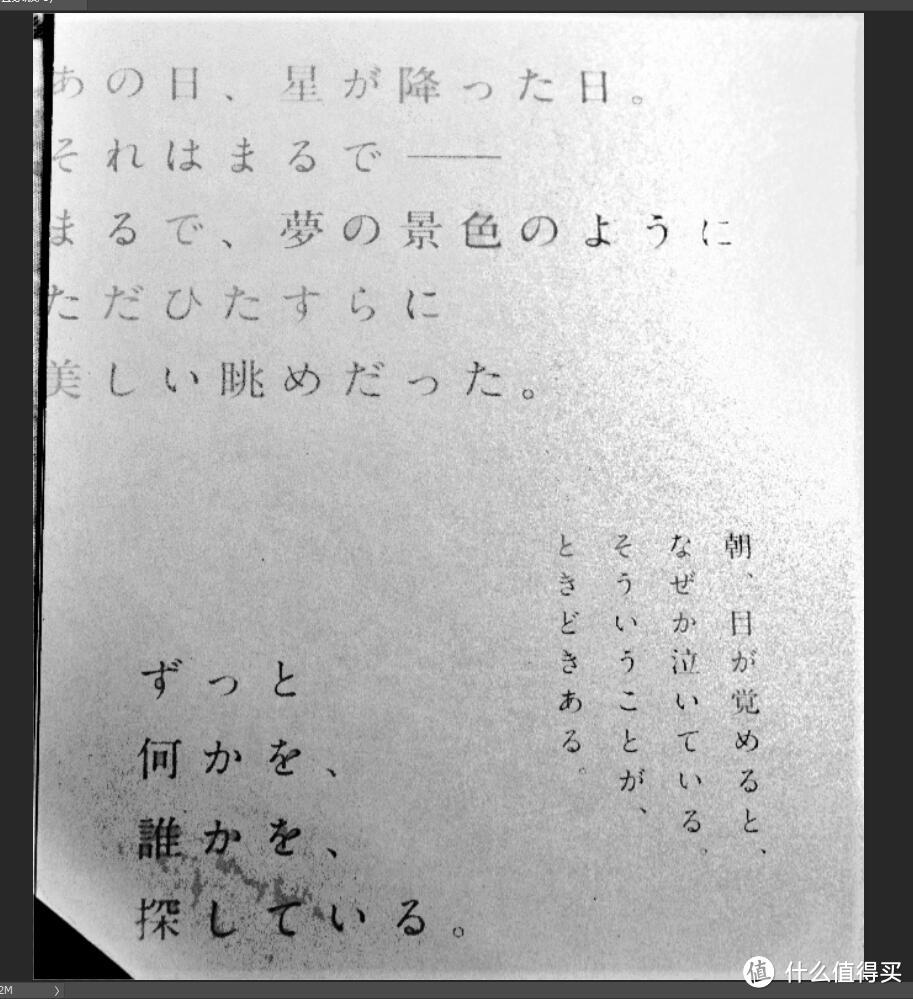 あの日、星が降った日。
それはまるで——
まるで、夢の景色のように
ただひたすらに
美しい眺めだった。
朝、目が覚めると、
なぜか泣いている。
そういうことが、
ときどきある。
ずっと
何かを、
誰かを、
探している。
2M
值 什么值得买